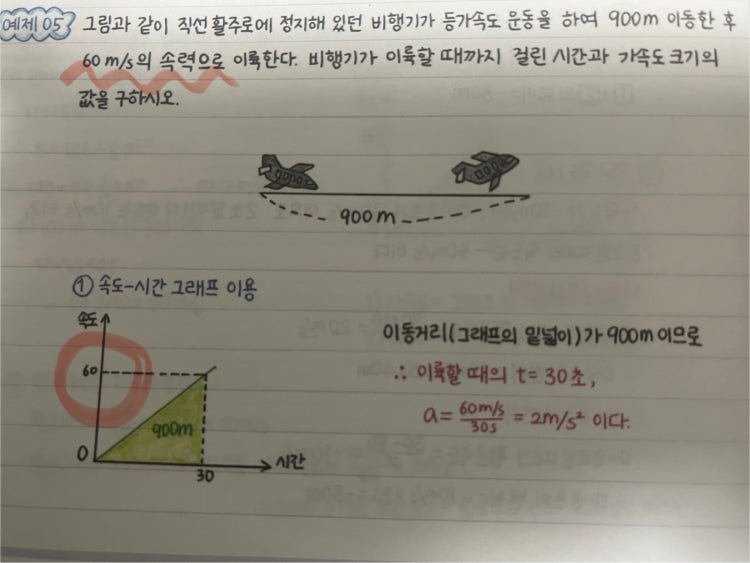 예제 05 그림과 같이 직선 활주로에 정지해 있던 비행기가 등가속도 운동을 하여 900m 이동한 후
60 m/s의 속력으로 이륙한다. 비행기가 이륙할 때까지 걸린 시간과 가속도 크기의
값을 구하시오.
900m
① 속도-시간 그래프 이용
속도
60
900m
0
30
시간
이동거리(그래프의 밑넓이)가 900m 이므로
∴ 이륙할 때의 t= 30초,
a= 60m/s / 30s = 2m/s² 이다.